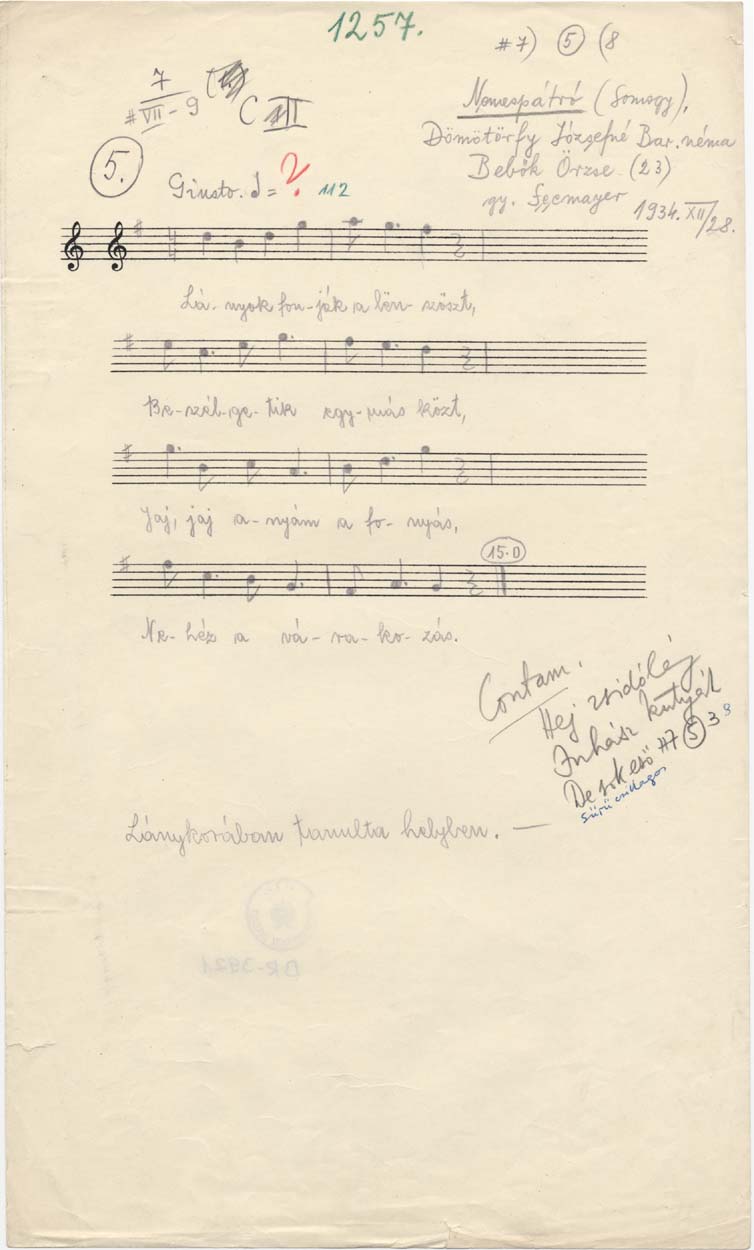 1257.
#7) 5 (8
7
#VII-9
C III
Nemespátró (Somogy),
Dömötörfy Józsefné Bar.néma
Bebők Örzse (23)
gy. Seemayer
1934. XII/28.
5.
Giusto. = ? 112
Lá-nyok fon-ják a lën-szöszt,
Be-szél-ge-tik egy-más közt,
Jaj, jaj a-nyám a fo-nyás,
15.D
Ne-héz a vá-ra-ko-zás.
Contam.
Hej zsidólé
Juhász kutyá
De sok eső #7 5 3
Lánykorában tanulta helyben. —